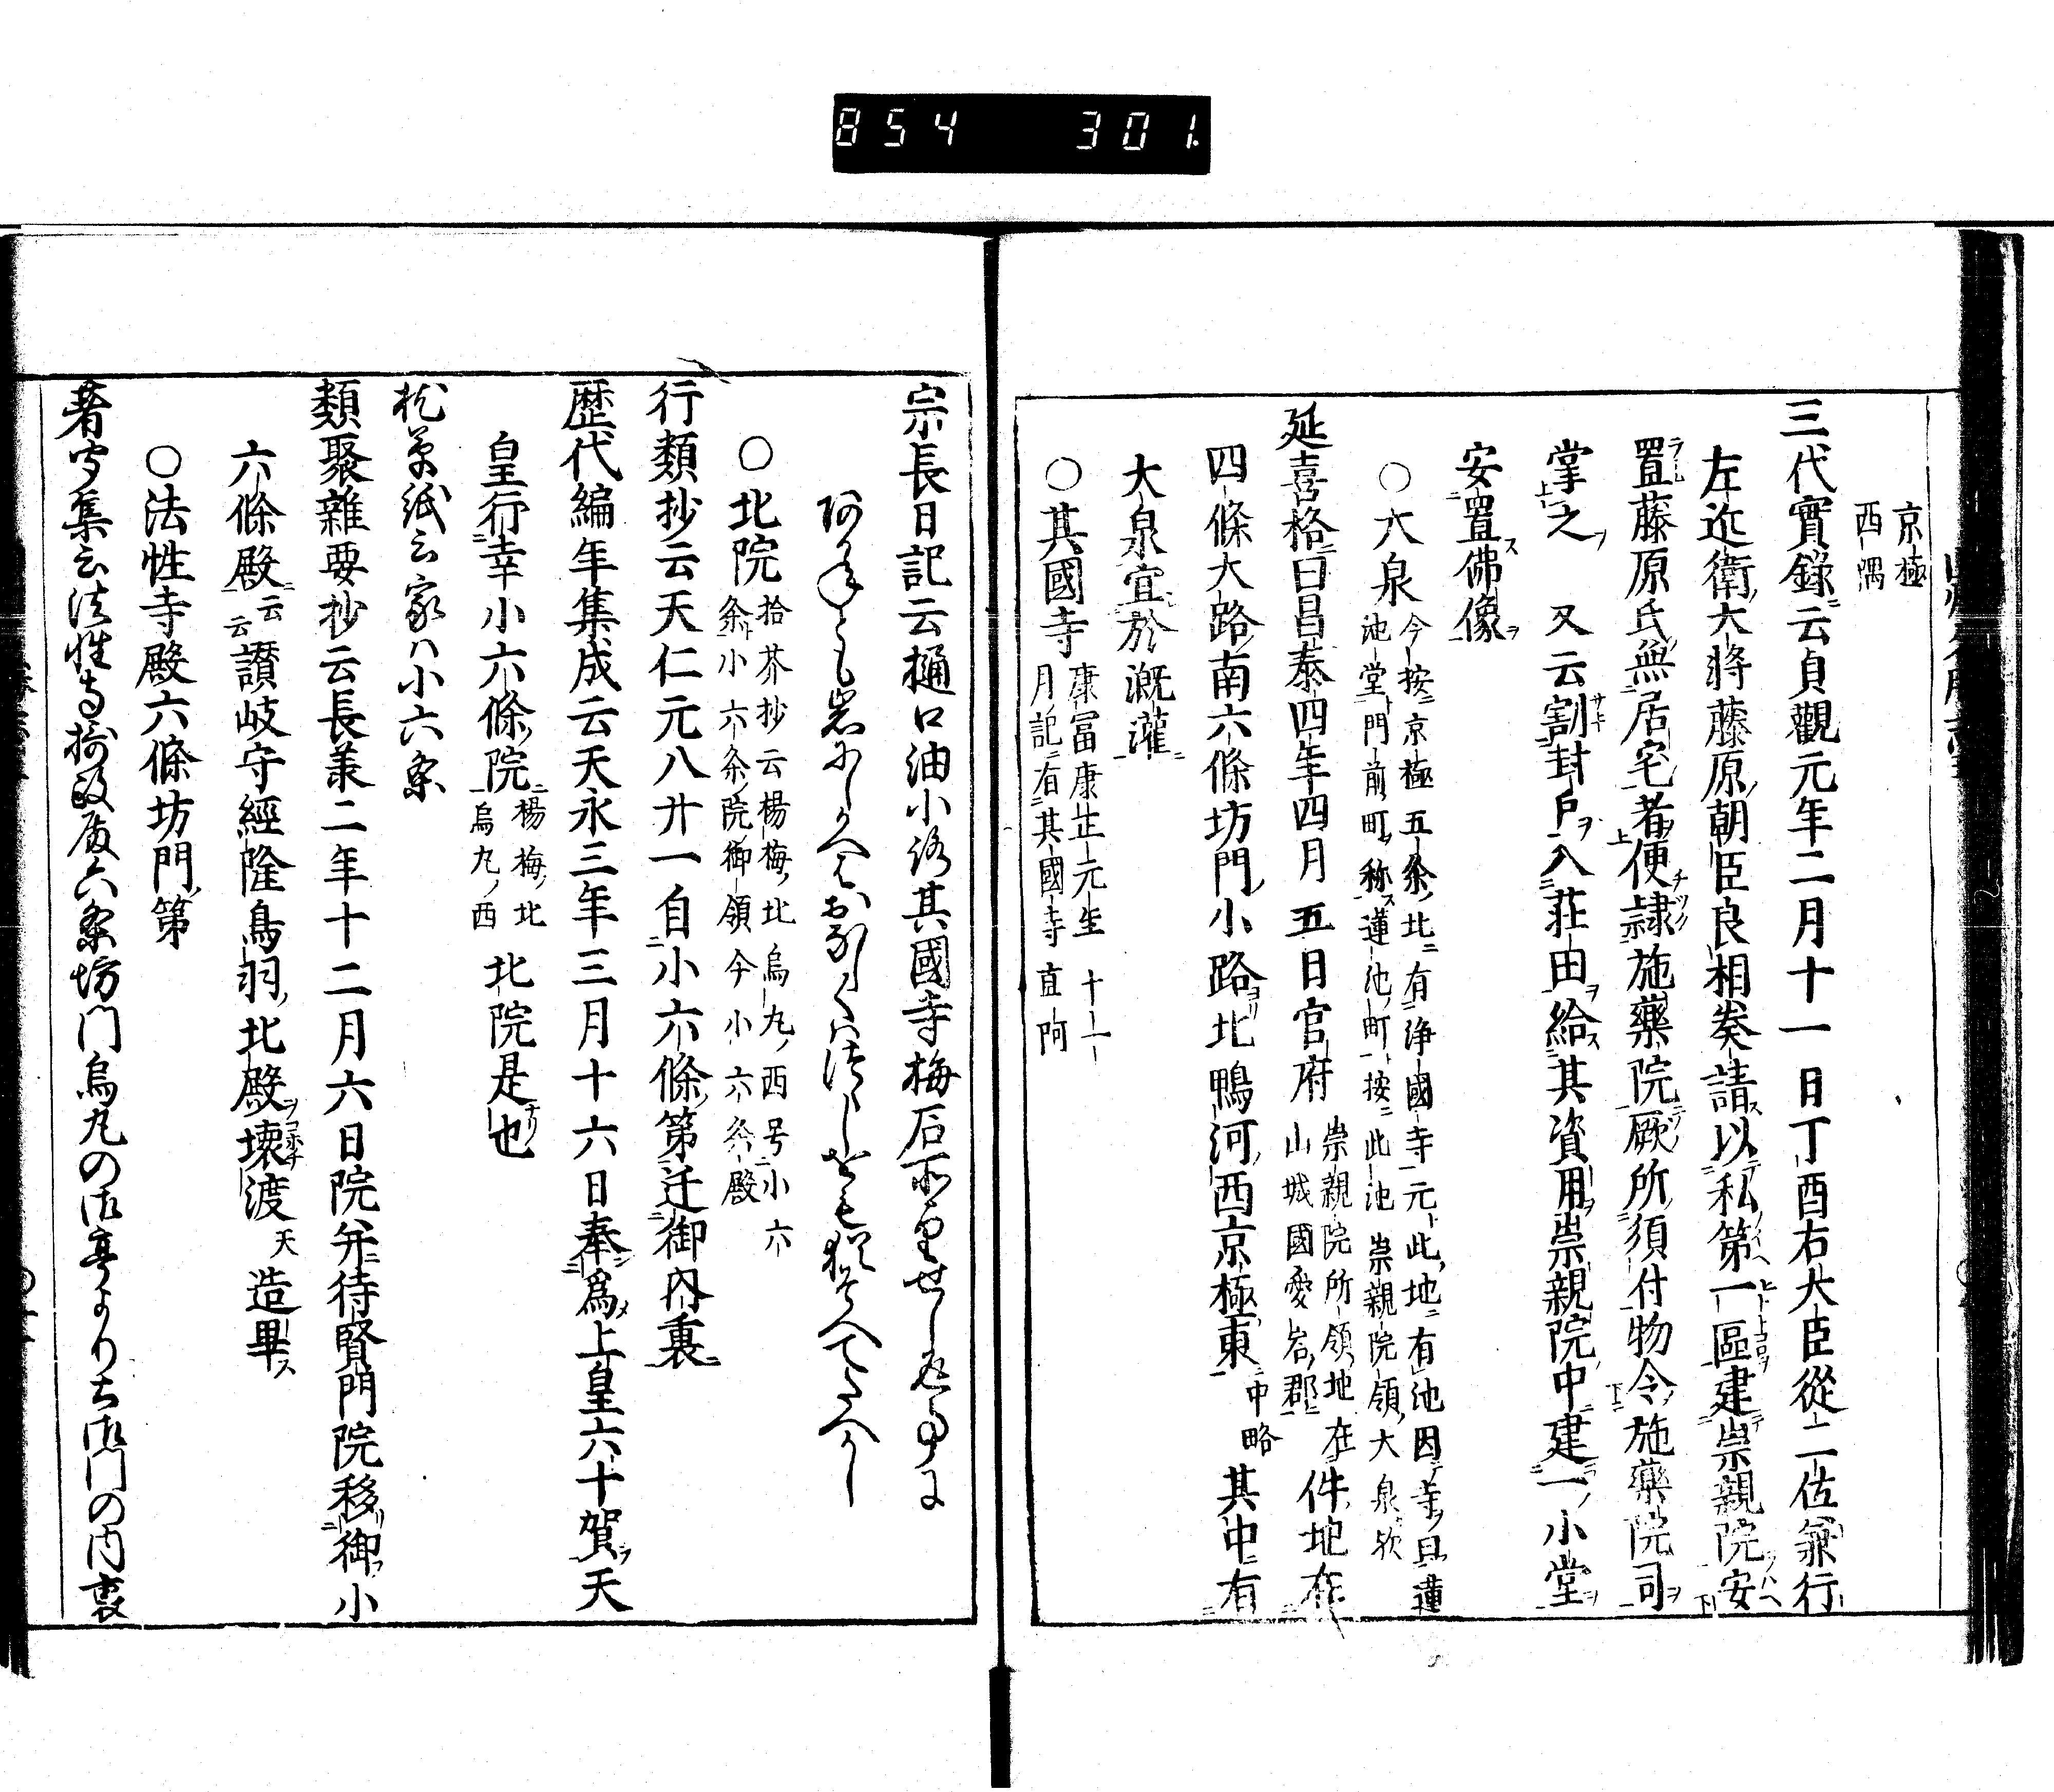 854 301.
京極
西隅
三代實録云貞觀元年二月十一日丁酉右大臣從二位兼行
左近衛大將藤原朝臣良相奏請以私第一區建崇親院安
置藤原氏無居宅者便隷施藥院厥所須付物令施藥院司
掌之 又云割封戸入荘田給其資用崇親院中建一小堂
安置佛像
○大泉 今按京極五条北有浄国寺元此地有池因寺曰蓮
池堂門前町称蓮池町按此池崇親院領大泉欤
延喜格曰昌泰四年四月五日官府 崇親院所領地在
山城國愛宕郡 件地在
四條大路南六條坊門小路北鴨河西京極東 中略 其中有
大泉宜於漑灌
○其國寺 康冨康正元年十一
月記有其國寺直阿
宗長日記云樋口油小路其國寺梅
○北院 拾芥抄云楊梅北烏丸西号小六
条小六条院御領今小六条殿
行類抄云天仁元八廿一自小六條第迁御内裏
歴代編年集成云天永三年三月十六日奉爲上皇六十賀天
皇行幸小六條院 楊梅北
烏丸西 北院是也
枕草紙云家ハ小六条
類聚雜要抄云長兼二年十二月六日院并待賢門院移御小
六條殿 云云 讃岐守經隆鳥羽北殿壊渡天造畢
○法性寺殿六條坊門第
著聞集云法性寺摂政殿六条坊門烏丸の御亭より土御門の内裏